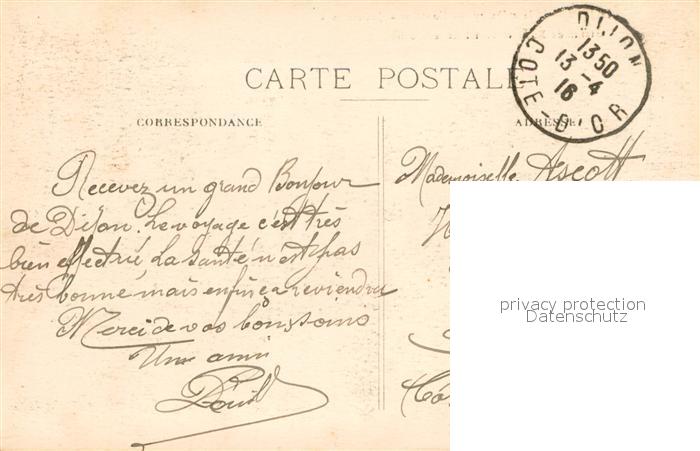 DIJON
COTE-D'OR
1350
13 -4
16
CARTE POSTALE
CORRESPONDANCE
ADRESSE
Recevez un grand Bonjour
de Dijon. Le voyage c'est très
bien effectué La santé n'est pas
très bonne, mais enfin ça reviendra
Merci de vos bons soins
Un ami
Mademoiselle Ascott
privacy protection
Datenschutz